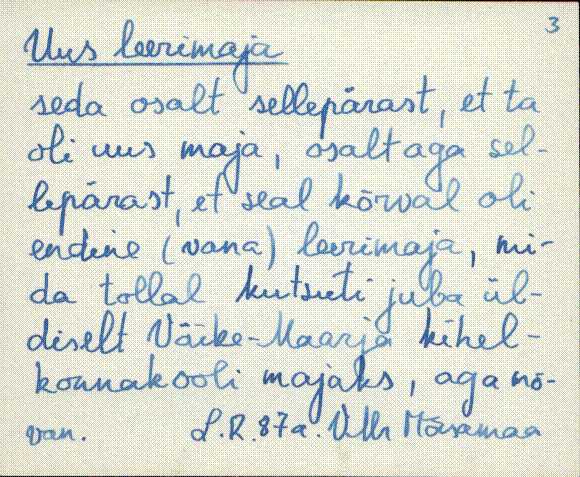 3
Uus leerimaja
seda osalt sellepärast, et ta
oli uus maja, osalt aga sel-
lepärast, et seal kõrval oli
endine (vana) leerimaja, mi-
da tollal kutsuti juba ül-
diselt Väike-Maarja kihel-
konnakooli majaks, aga nõ-
van. L.R. 87a. VMr Mõisamaa